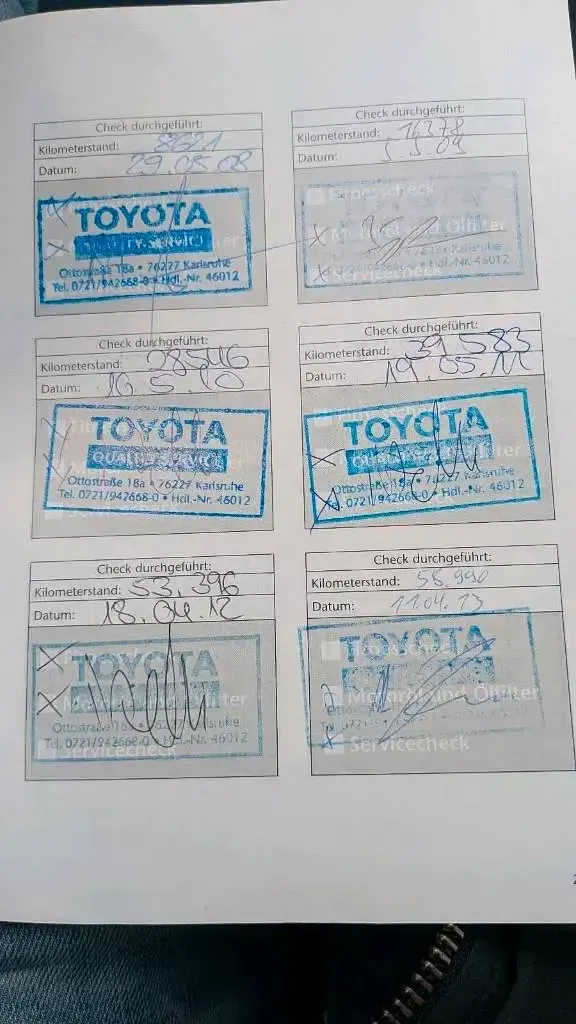 Check durchgeführt:
Kilometerstand: 8621
Datum: 29.05.08
TOYOTA
QUALITY-SERVICE
Ottostraße 18a • 76227 Karlsruhe
Tel. 0721/942668-0 • Hdl.-Nr. 46012
Check durchgeführt:
Kilometerstand: 16378
Datum: 5.5.09
Fitnesscheck
Motoröl und Ölfilter
Servicecheck
Karlsruhe
46012
Check durchgeführt:
Kilometerstand: 28546
Datum: 10.5.10
TOYOTA
QUALITY-SERVICE
Ottostraße 18a • 76227 Karlsruhe
Tel. 0721/942668-0 • Hdl.-Nr. 46012
Check durchgeführt:
Kilometerstand: 39583
Datum: 19.05.11
TOYOTA
QUALITY-SERVICE
Ottostraße 18a • 76227 Karlsruhe
Tel. 0721/942668-0 • Hdl.-Nr. 46012
Check durchgeführt:
Kilometerstand: 53.396
Datum: 18.04.12
TOYOTA
Ottostraße 18a • 76227 Karlsruhe
Tel. 0721/942668-0 • Hdl.-Nr. 46012
Servicecheck
Check durchgeführt:
Kilometerstand: 58.990
Datum: 11.04.13
TOYOTA
Motoröl und Ölfilter
Servicecheck